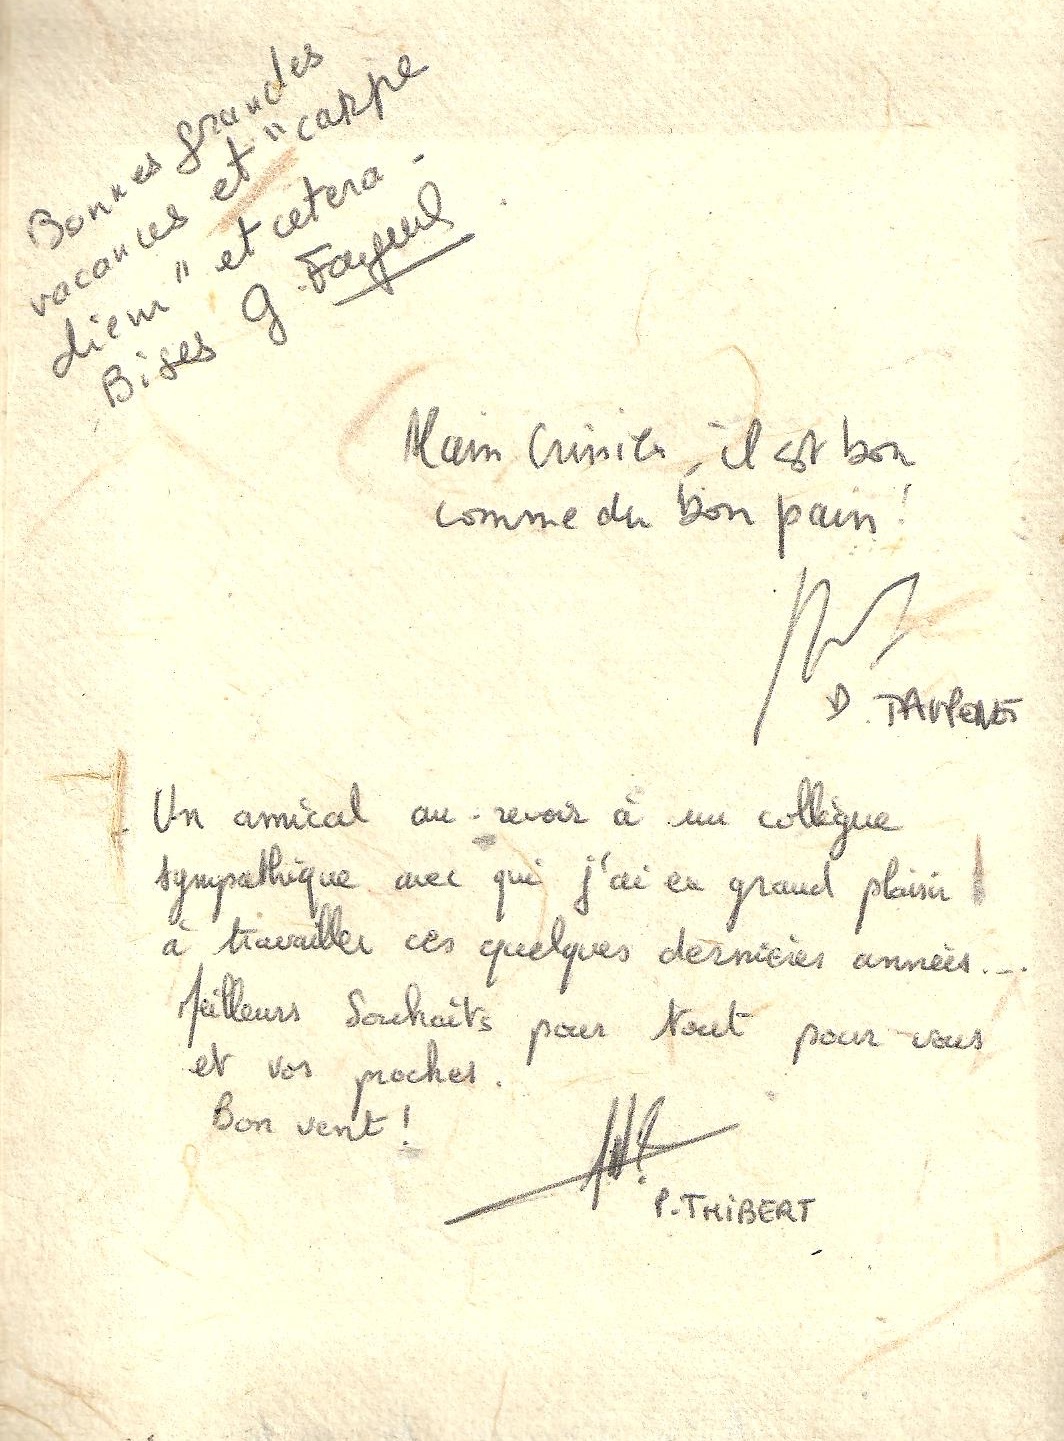 Bonnes grandes
vacances et "carpe
diem" et cetera.
Bises G.
Alain il est bon
comme du bon pain !
D.
Un amical au-revoir à un collègue
sympathique avec qui j'ai eu grand plaisir
à travailler ces quelques dernières années...
Meilleurs souhaits pour tout pour vous
et vos proches.
Bon vent !
P. THIBERT